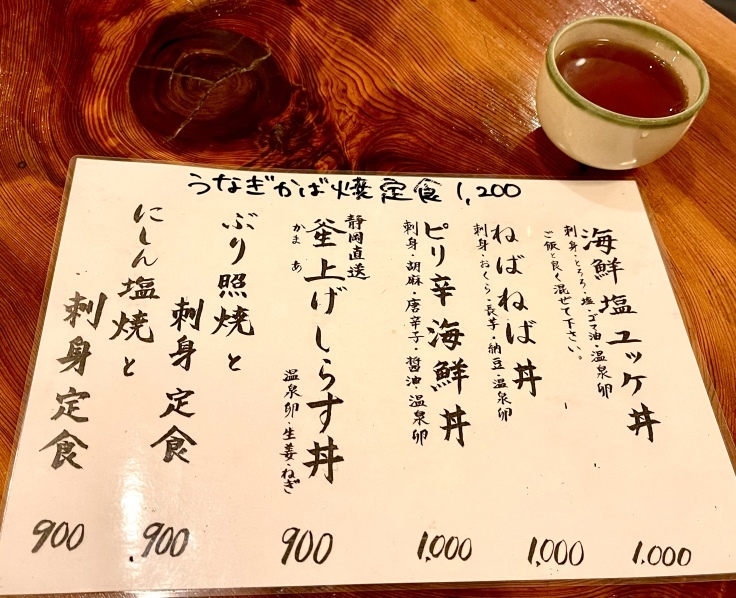 うなぎかば焼定食 1,200
海鮮塩ユッケ丼
刺身・とろろ・塩・ゴマ油・温泉卵
ご飯と良く混ぜて下さい。
1,000
ねばねば丼
刺身・おくら・長芋・納豆・温泉卵
1,000
ピリ辛海鮮丼
刺身・胡麻・唐辛子・醤油・温泉卵
1,000
静岡直送
釜上げしらす丼
かま あ
温泉卵・生姜・ねぎ
900
ぶり照焼と
刺身定食
900
にしん塩焼と
刺身定食
900